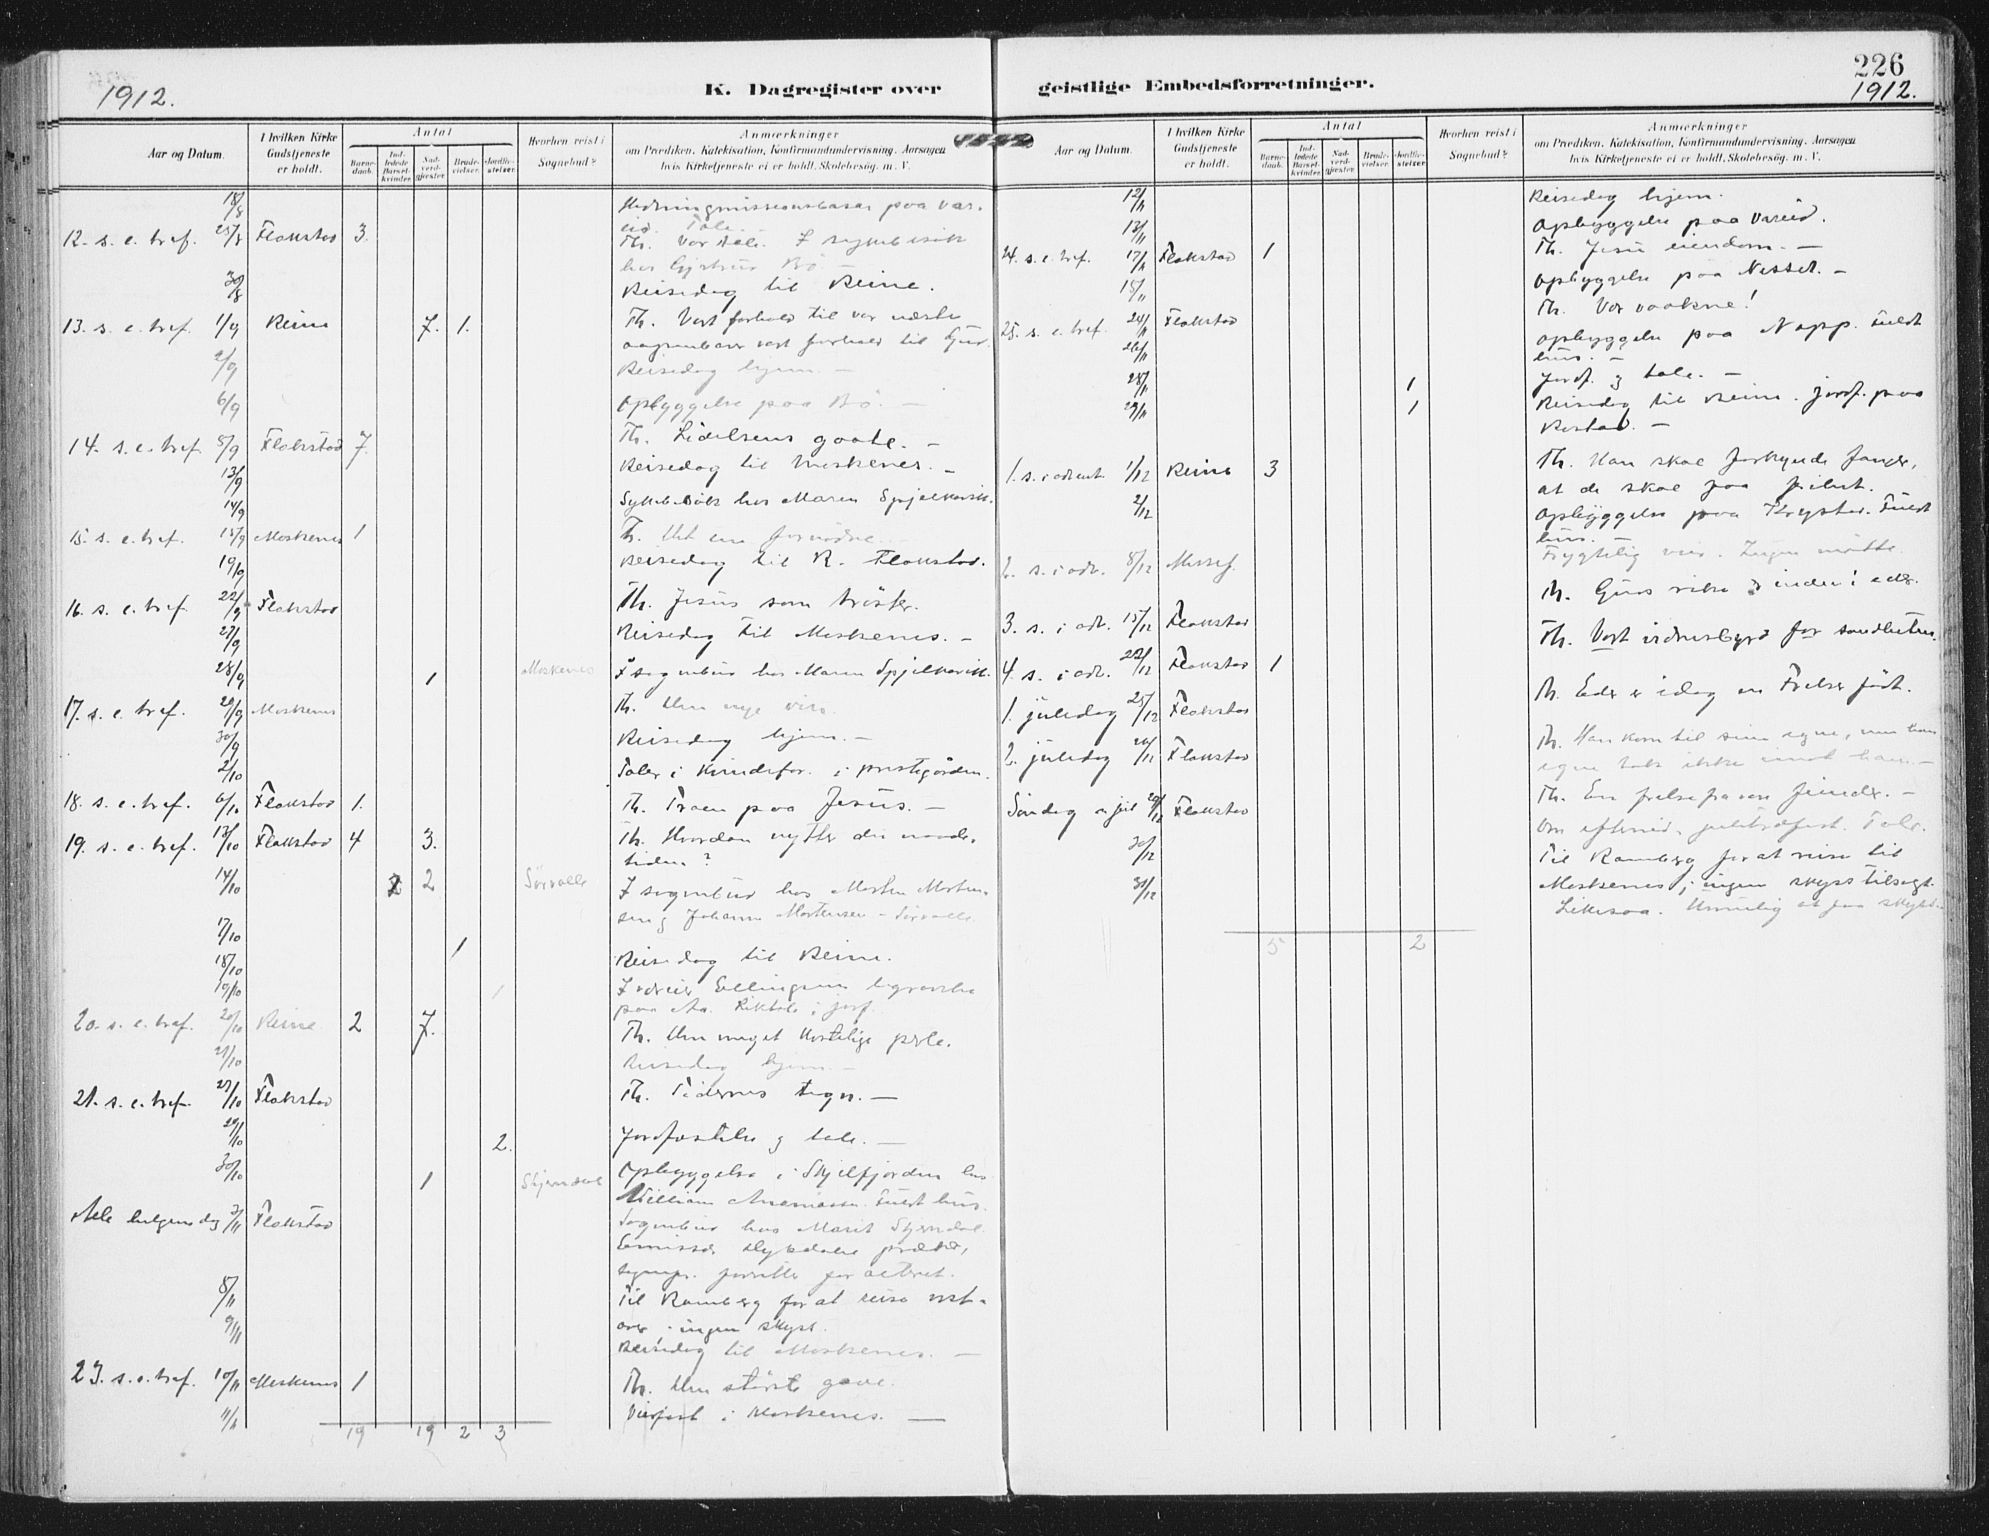 226
1912.
1912.
K. Dagregister over
geistlige Embedsforretninger.
Aar og Datum.
I hvilken Kirke Gudstjeneste er holdt.
Antal
Barnedaab.
Indledede Barselkvinder.
Nadverdgjæster.
Brudevielser.
Jordfæstelser.
Hvorhen reist i Sognebud?
Anmærkninger
om Prædiken, Katekisation, Konfirmandundervisning, Aarsagen
hvis Kirketjeneste ei er holdt, Skolebesög. m. V.
18/8 Hedningmissionsbasar paa Var-
eid. Tale.
12. s. e. tref. 25/8 Flakstad 3.
30/8 Reisedag til Reine.
13. s. e. tref. 1/9 Reine 7. 1. Th. Vort forhold til vor næste
2/9 Reisedag hjem. —
6/9 Opbyggelse paa Bö. —
14. s. e. tref. 8/9 Flakstad 7. Th. Lidelsens gaade. —
13/9 Reisedag til Moskenes. —
14/9 Sykebesök hos Maren Spjelkavik.
15. s. e. tref. 15/9 Moskenes 1 Th. Det ene fornødne. —
19/9 Reisedag til R. Flakstad.
16. s. e. tref. 22/9 Flakstad Th. Jesus som trøster.
27/9 Reisedag til Moskenes. —
28/9 1 Moskenes I sognebud hos Maren Spjelkavik.
17. s. e. tref. 29/9 Moskenes Th. Den nye vin.
30/9 Reisedag hjem. —
2/10 Taler i Kvindefor. i prestegården.
18. s. e. tref. 6/10 Flakstad 1. Th. Troen paa Jesus. —
19. s. e. tref. 13/10 Flakstad 4 3. Th. Hvordan nytter du naade-
tiden?
14/10 2 2 Sörvaag I sognebud hos Morten Morten-
sen og Johanna Mortensen
17/10 1 Reisedag til Reine.
18/10
19/10 1
20. s. e. tref. 20/10 Reine 2 7. Th. Den meget kostelige perle.
21/10 Reisedag hjem. —
21. s. e. tref. 27/10 Flakstad Th. Tidernes tegn. —
29/10 2. Jordfæstelse og tale. —
30/10 1 Skjerndal Opbyggelse i Skjelfjorden hos
William Fuldt hus.
Alle helgens dag 3/11 Flakstad Sognebud hos Marit Skjerndal.
8/11 Til Ramberg for at reise vest-
over - ingen skyss.
9/11 Reisedag til Moskenes. —
23. s. e. tref. 10/11 Moskenes 1 Th. Den største gave.
11/11 Veirfast i Moskenes. —
19 19 2 3
Aar og Datum.
I hvilken Kirke Gudstjeneste er holdt.
Antal
Barnedaab.
Indledede Barselkvinder.
Nadverdgjæster.
Brudevielser.
Jordfæstelser.
Hvorhen reist i Sognebud?
Anmærkninger
om Prædiken, Katekisation, Konfirmandundervisning, Aarsagen
hvis Kirketjeneste ei er holdt, Skolebesög. m. V.
12/11 Reisedag hjem.
13/11 Opbyggelse paa Vareid.
24. s. e. tref. 17/11 Flakstad 1 Th. Jesu eiendom. —
18/11 Opbyggelse paa Nesset. —
25. s. e. tref. 24/11 Flakstad Th. Vor vaakne!
26/11 Opbyggelse paa Napp. Fuldt
hus. —
28/11 1 Jordf. og tale. —
29/11 1 Reisedag til Reine. Jordf. paa
1. s. i advent 1/12 Reine 3 Th. Han skal forkynde fanger,
at de skal faa frihet.
2/12 Opbyggelse paa Krystad. Fuldt
hus. —
2. s. i adv. 8/12 Messef. Frygtelig veir. Ingen møtte.
3. s. i adv. 15/12 Flakstad Th. Guds rike er inden i eder.
4. s. i adv. 22/12 Flakstad 1 Th. Vort vidnesbyrd for sandheten.
1. juledag 25/12 Flakstad Th. Eder er idag en Frelser født.
2. juledag 26/12 Flakstad Th. Han kom til sine egne, men hans
egne tok ikke imod ham. —
Søndag e. jul 29/12 Flakstad Th. En frelse fra vore fiender. —
Om efterm. juletræfest. Taler.
30/12 Til Ramberg for at reise til
Moskenes; ingen skyss tilsagt.
31/12 Likesaa. Umulig at faa skyss.
5 2